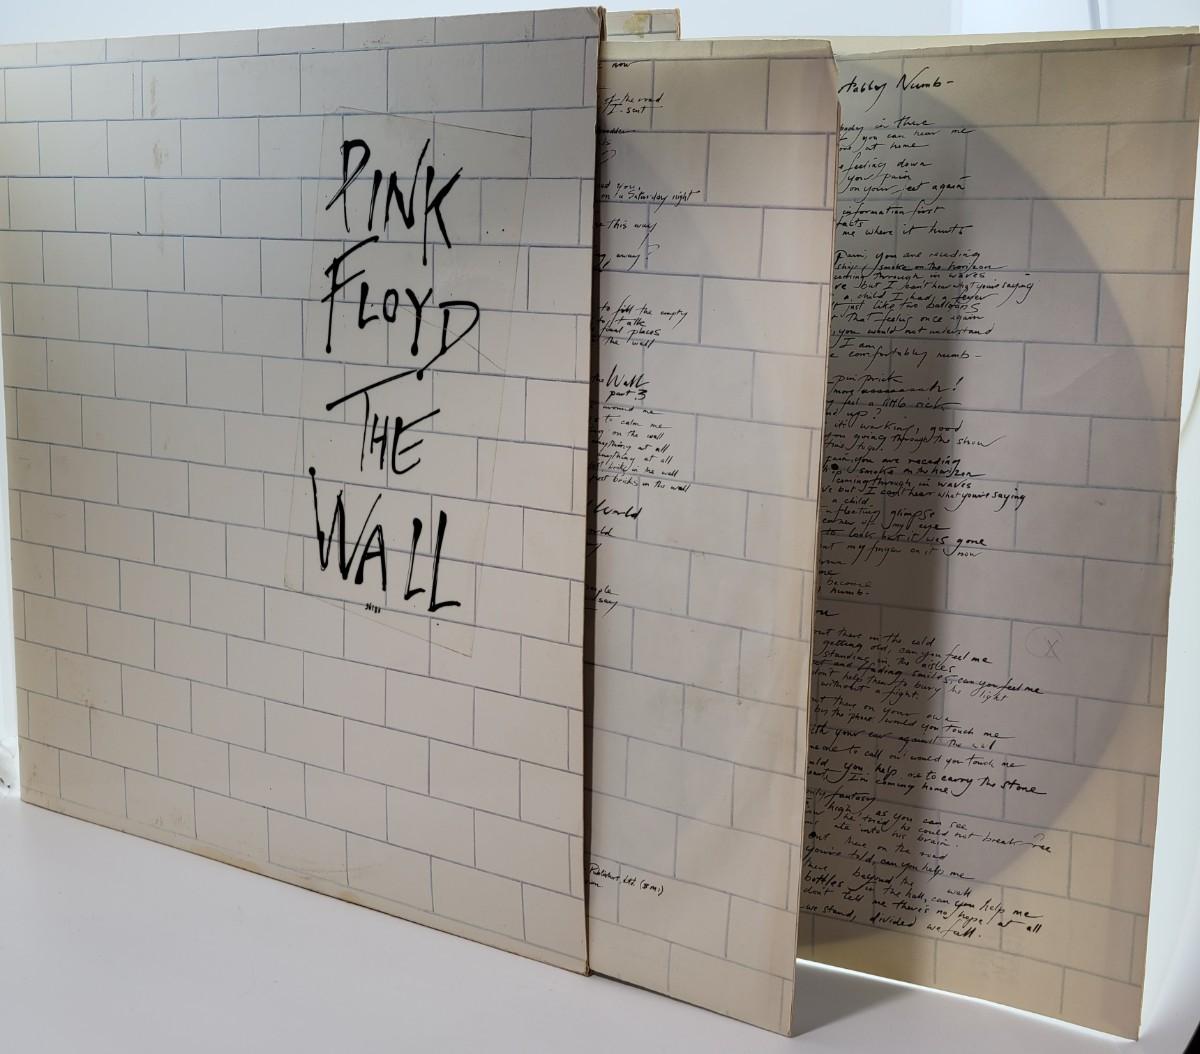 PINK
FLOYD
THE
WALL
36183
now
of the road
I sent
you,
on a Saturday night
this way
away?
to fill the empty
talk
places
the wall
Wall
part 3
around me
to calm me
on the wall
anything at all
anything at all
bricks in the wall
just bricks in the wall
World
say
Publishers Ltd.
Numb-
in there
you can hear me
at home
feeling down
your pain
on your feet again
information first
facts
me where it hurts
pain, you are receding
smoke on the horizon
coming through in waves
but I can't hear what you're saying
a child I had a fever
just like two balloons
That feeling once again
you would not understand
I am
comfortably numb-
pin prick
aaaaaaah!
feel a little sick
up?
it's working, good
you going through the show
time to go.
pain, you are receding
smoke on the horizon
coming through in waves
but I can't hear what you're saying
a child
fleeting glimpse
corner of my eye
to look but it was gone
my finger on it now
me
become
numb-
out there in the cold
getting old, can you feel me
standing in the aisles
and fading smiles can you feel me
don't help them to bury the light
without a fight.
there on your own
by the phone would you touch me
with your ear against the wall
to call out would you touch me
you help me to carry the stone
I'm coming home
fantasy
high, as you can see
he tried he could not break free
ate into his brain.
out there on the road
you're told, can you help me
beyond the wall
bottles in the hall, can you help me
don't tell me there's no hope at all
we stand, divided we fall.
X